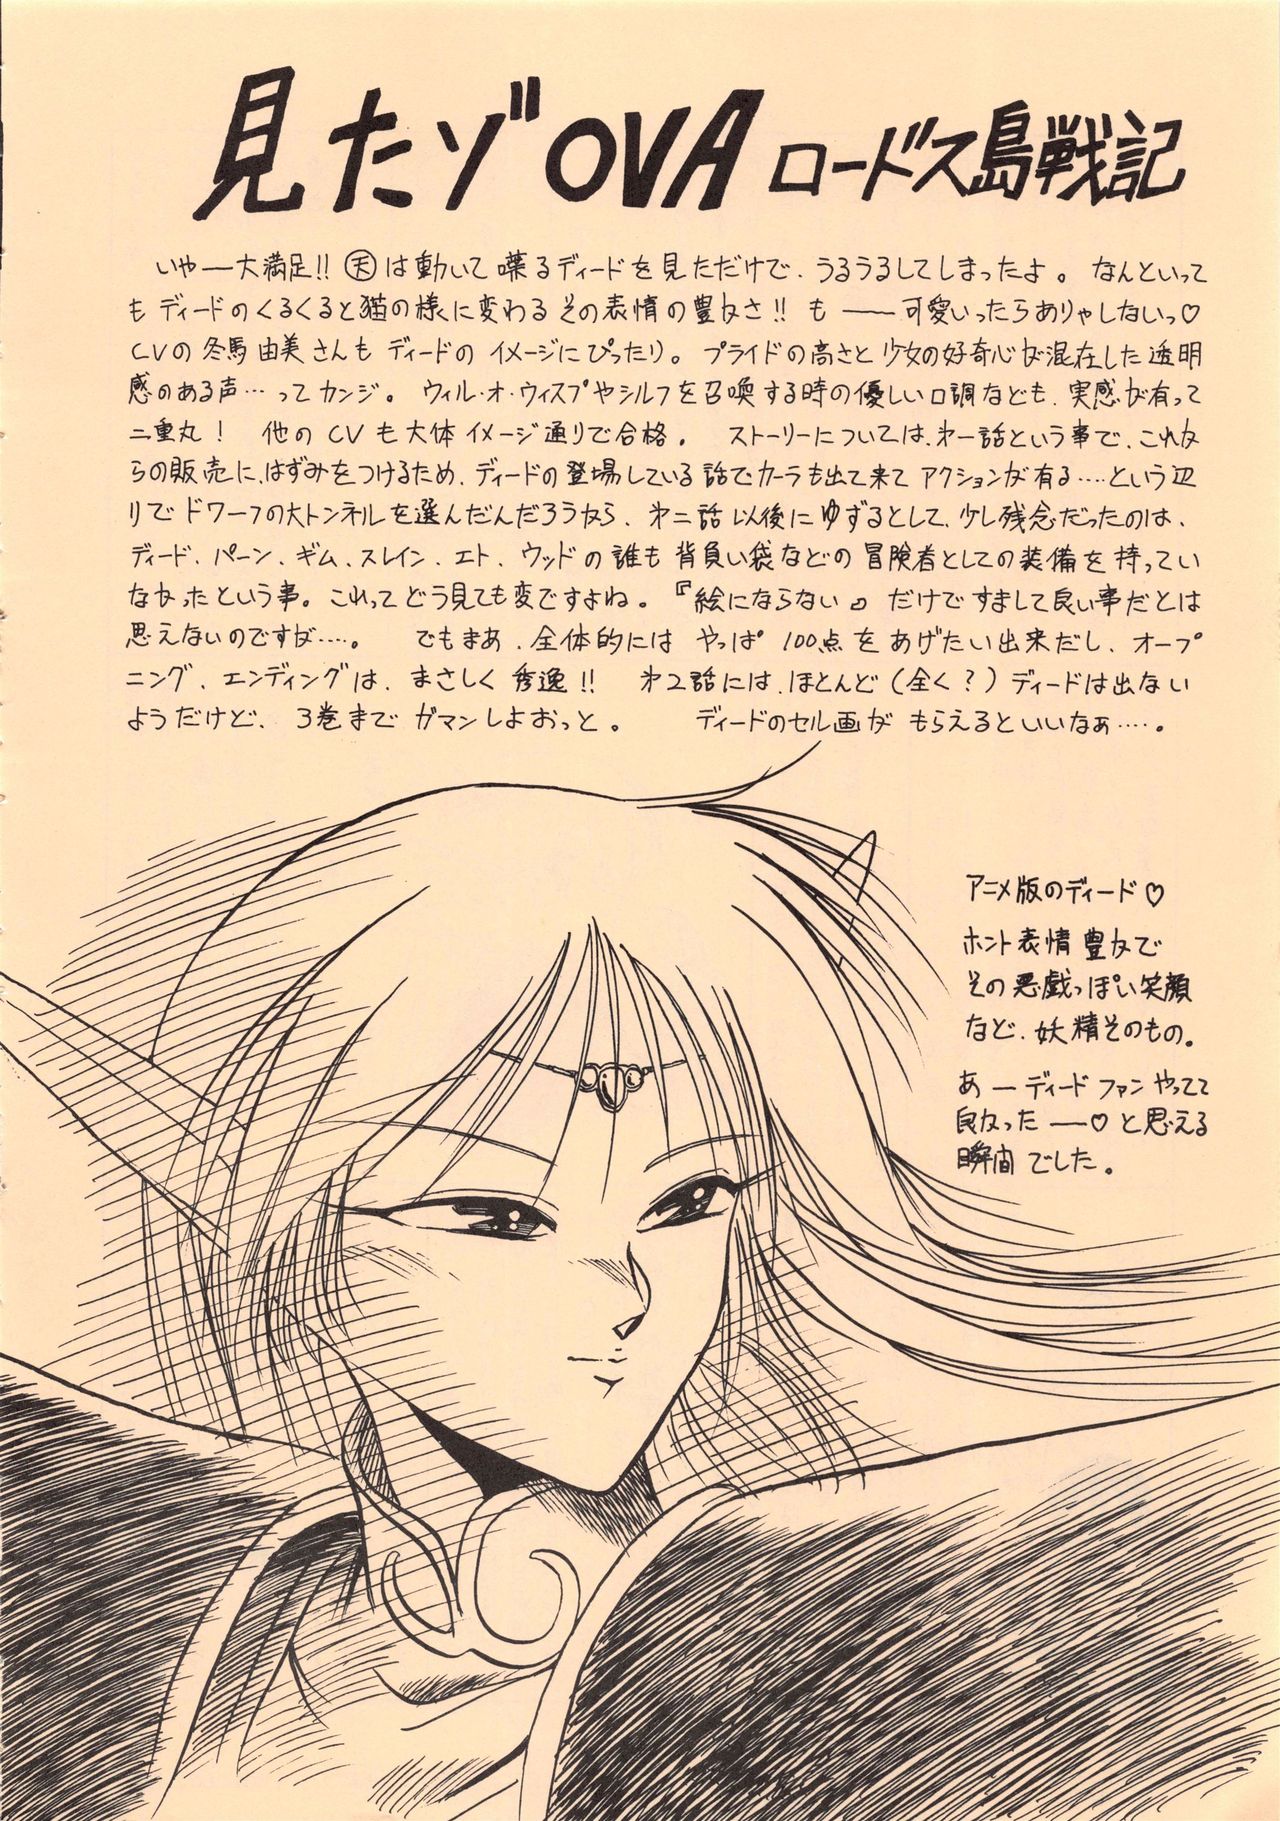 見たゾ OVA ロードス島戦記
いやー大満足!! ㊝は動いて喋るディードを見ただけで、うるうるしてしまったよ。なんといって
もディードのくるくると猫の様に変わるその表情の豊かさ!! もー可愛いったらありゃしないっ♡
CVの冬馬由美さんもディードのイメージにぴったり。プライドの高さと少女の好奇心が混在した透明
感のある声…ってカンジ。ウィル・オ・ウィスプやシルフを召喚する時の優しい口調なども、実感が有って
二重丸! 他のCVも大体イメージ通りで合格。ストーリーについては、第一話という事で、これか
らの販売に、はずみをつけるため、ディードの登場している話でカーラも出て来てアクションが有る……という辺
りでドワーフの大トンネルを選んだんだろうから、第二話以後にゆずるとして、少し残念だったのは、
ディード、パーン、ギム、スレイン、エト、ウッドの誰も背負い袋などの冒険者としての装備を持ってい
なかったという事。これってどう見ても変ですよね。『絵にならない』だけですまして良い事だとは
思えないのですが……。 でもまあ、全体的には やっぱ100点をあげたい出来だし、オープ
ニング、エンディングは、まさしく秀逸!! 第2話には、ほとんど(全く?)ディードは出ない
ようだけど、3巻までガマンしよおっと。 ディードのセル画がもらえるといいなぁ……。
アニメ版のディード♡
ホント表情豊かで
その悪戯っぽい笑顔
など、妖精そのもの。
あーディードファンやってて
良かったー♡と思える
瞬間でした。